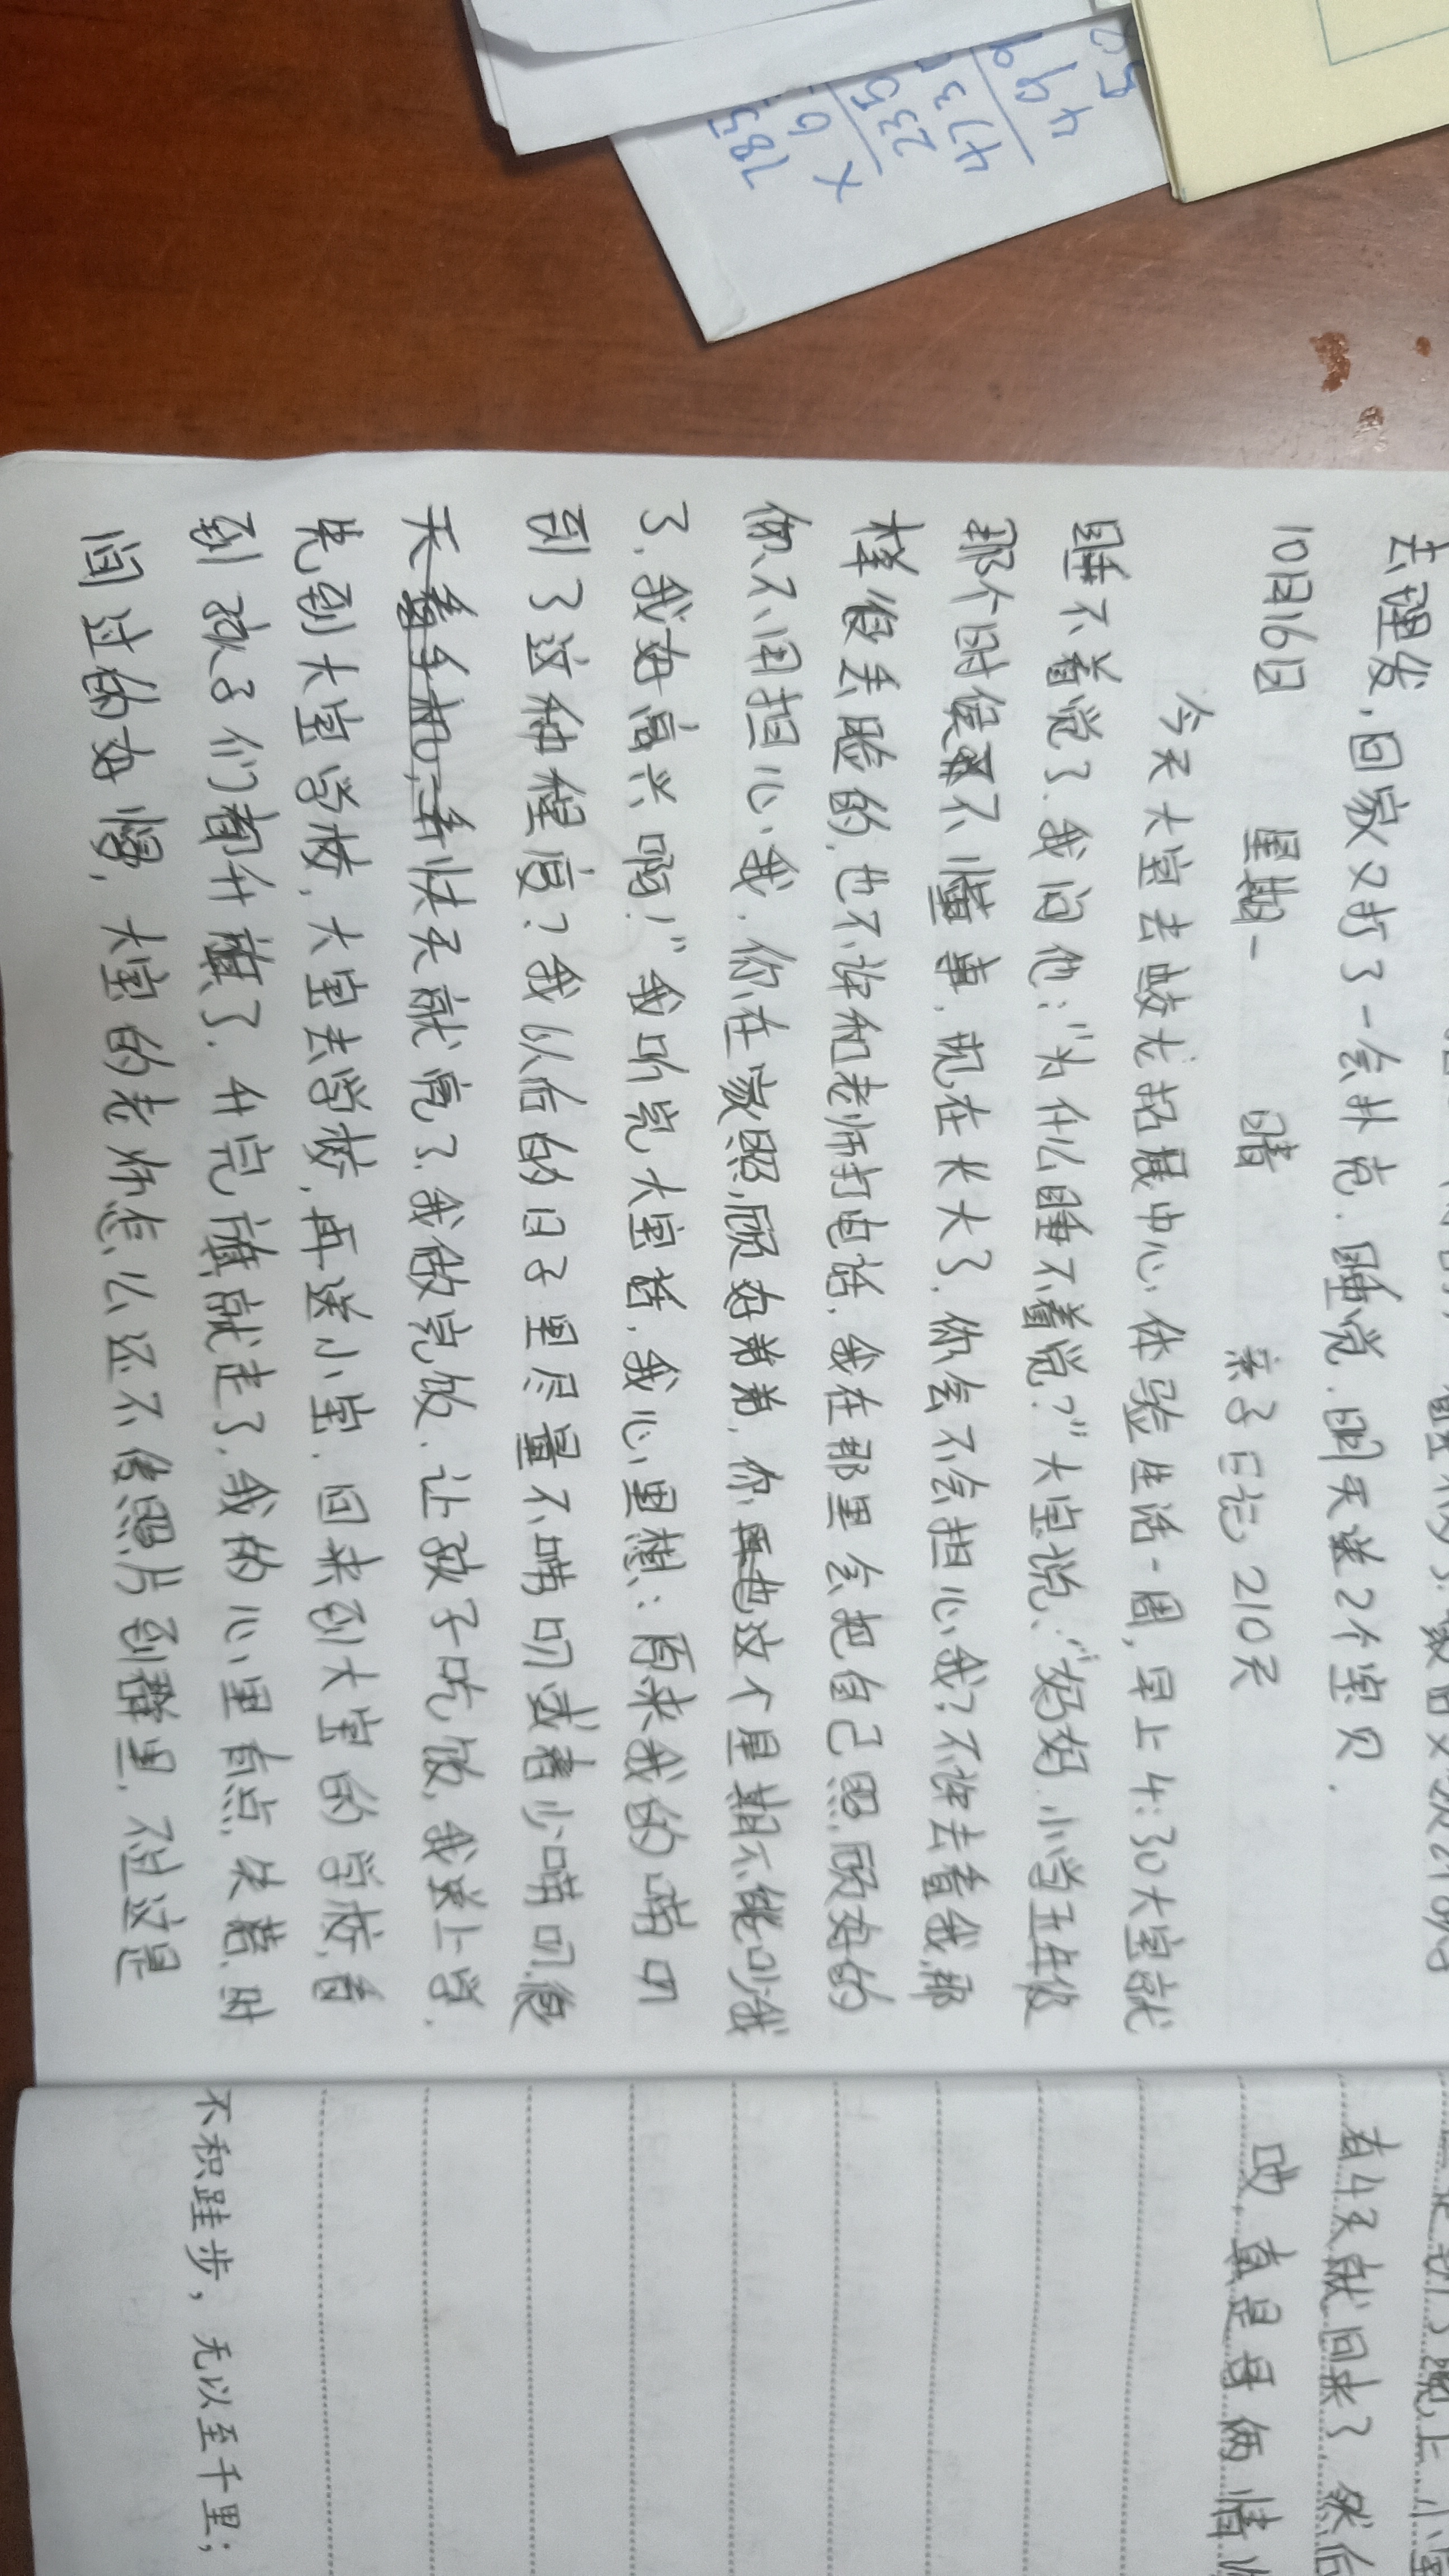 去理发，回家又打了一会扑克．睡觉．明天送2个宝贝．
10月16日 星期一 晴 亲子日记 210天
今天大宝去敲尤拓展中心体验生活一周，早上4:30大宝就
睡不着觉了．我问他："为什么睡不着觉？"大宝说："妈妈．小学五年级
那个时候不懂事．现在长大了．你会不会担心我？不许去看我，那
样很丢脸的，也不许和老师打电话．我在那里会把自己照顾好的
你不用担心我．你在家照顾好弟弟．你也这个星期不能吵我
了．我好高兴啊！"我听完大宝话，我心里想：原来我的唠叨
到了这种程度？我以后的日子里尽量不唠叨或者少唠叨，很
快天就亮了．我做完饭．让孩子吃饭，我送上学．
先到大宝学校，大宝去学校，再送小宝．回来到大宝的学校，看
到孩子们都升旗了．升完旗就走了．我的心里有点失落．时
间过的好慢，大宝的老师怎么还不传照片到群里，不过这是
有4天就回来了．然后
哎，真是母俩情
不积跬步，无以至千里；
785
235
473